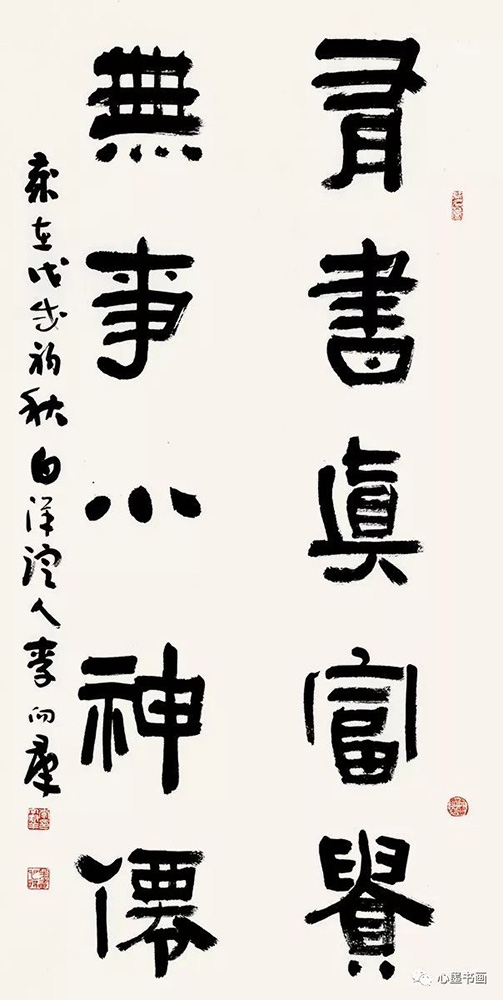 有書真富貴
無事小神僊
歲在戊戌初秋白洋淀人李向群
心墨书画